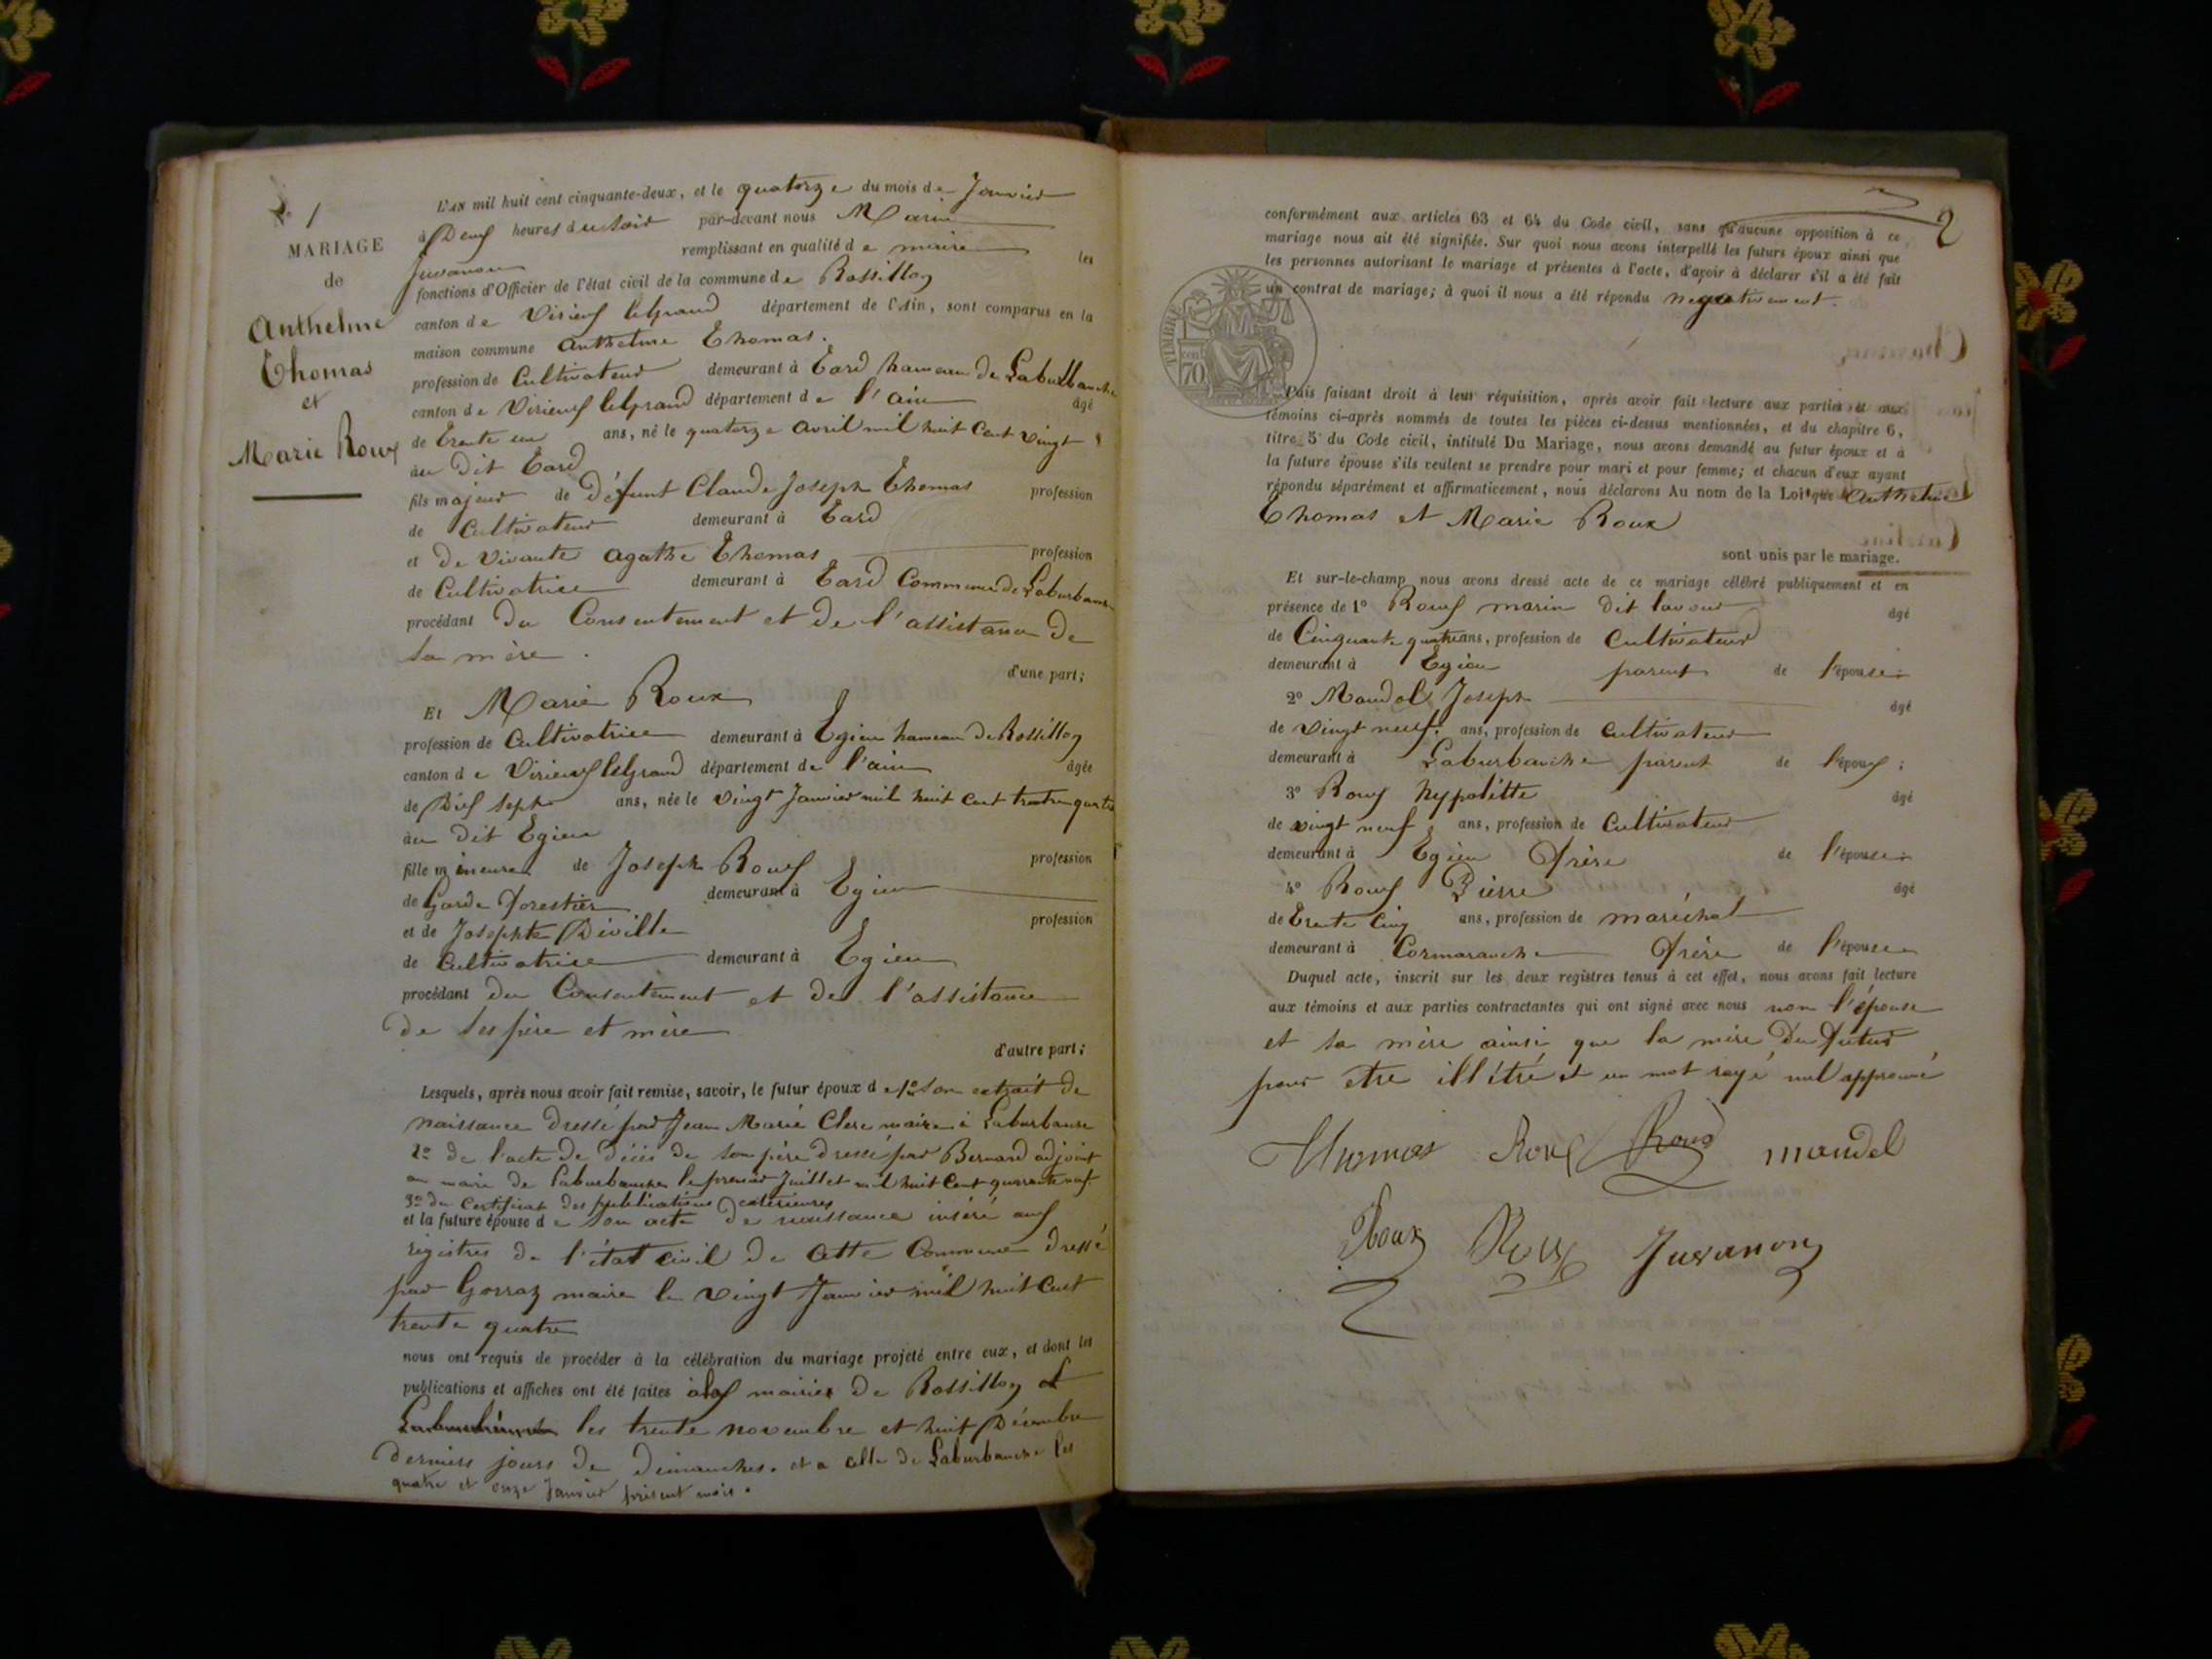 N° 1
MARIAGE
de
Anthelme
Thomas
et
Marie Roux
L'AN mil huit cent cinquante-deux, et le quatorze du mois de Janvier
à Deux heures du soir par-devant nous Marin
Juvanon remplissant en qualité de maire les
fonctions d'Officier de l'état civil de la commune de Rossillon
canton de Virieux legrand département de l'Ain, sont comparus en la
maison commune Anthelme Thomas.
profession de Cultivateur demeurant à Tard hameau de Laburbanche
canton de Virieux legrand département de l'ain âgé
de Trente un ans, né le quatorze avril mil huit cent vingt
au dit Tard
fils majeur de Défunt Claude Joseph Thomas profession
de Cultivateur demeurant à Tard
et De vivante Agathe Thomas profession
de Cultivatrice demeurant à Tard Commune de Laburbanche
procédant du Consentement et de l'assistance De
sa mère.
d'une part;
Et Marie Roux
profession de Cultivatrice demeurant à Egieu hameau de Rossillon
canton de Virieux legrand département de l'ain âgée
de Dix sept ans, née le vingt Janvier mil huit cent trente quatre
au dit Egieu
fille mineure de Joseph Roux profession
de Garde forestier demeurant à Egieu
et de Josephte Diville profession
de Cultivatrice demeurant à Egieu
procédant du Consentement et de l'assistance
de ses père et mère
d'autre part;
Lesquels, après nous avoir fait remise, savoir, le futur époux de 1° son extrait de
naissance dressé par Jean Marie Clerc maire à Laburbanche
2° de l'acte de décès de son père dressé par Bernard adjoint
au maire de Laburbanche le premier Juillet mil huit cent quarante neuf
3° du Certificat des publications extérieures
et la future épouse de son acte de naissance inséré aux
régistres de l'état civil de cette Commune dressé
par Gorraz maire le vingt Janvier mil huit cent
trente quatre
nous ont requis de procéder à la célébration du mariage projeté entre eux, et dont les
publications et affiches ont été faites mairie de Rossillon et
les trente novembre et huit Décembre
derniers jours de Dimanches. et a celle de Laburbanche les
quatre et onze Janvier présent mois.
2
conformément aux articles 63 et 64 du Code civil, sans qu'aucune opposition à ce
mariage nous ait été signifiée. Sur quoi nous avons interpellé les futurs époux ainsi que
les personnes autorisant le mariage et présentes à l'acte, d'avoir à déclarer s'il a été fait
un contrat de mariage; à quoi il nous a été répondu négativement.
TIMBRE
cent
70
Puis faisant droit à leur réquisition, après avoir fait lecture aux parties et aux
témoins ci-après nommés de toutes les pièces ci-dessus mentionnées, et du chapitre 6,
titre 5 du Code civil, intitulé Du Mariage, nous avons demandé au futur époux et à
la future épouse s'ils veulent se prendre pour mari et pour femme; et chacun d'eux ayant
répondu séparément et affirmativement, nous déclarons Au nom de la Loi que Anthelme
Thomas et Marie Roux
sont unis par le mariage.
Et sur-le-champ nous avons dressé acte de ce mariage célébré publiquement et en
présence de 1° Roux marin dit lavour âgé
de Cinquante quatre ans, profession de Cultivateur
demeurant à Egieu parent de l'épouse
2° Mandel Joseph âgé
de vingt neuf. ans, profession de Cultivateur
demeurant à Laburbanche parent de l'époux;
3° Roux hypolitte âgé
de vingt neuf ans, profession de Cultivateur
demeurant à Egieu frère de l'épouse
4° Roux Pierre âgé
de Trente Cinq ans, profession de maréchal
demeurant à Cormaranche frère de l'épouse
Duquel acte, inscrit sur les deux registres tenus à cet effet, nous avons fait lecture
aux témoins et aux parties contractantes qui ont signé avec nous non l'épouse
et sa mère ainsi que la mère du futur
pour etre illétré et un mot rayé nul approuvé
Thomas Roux Roux mandel
Roux Roux Juvanon